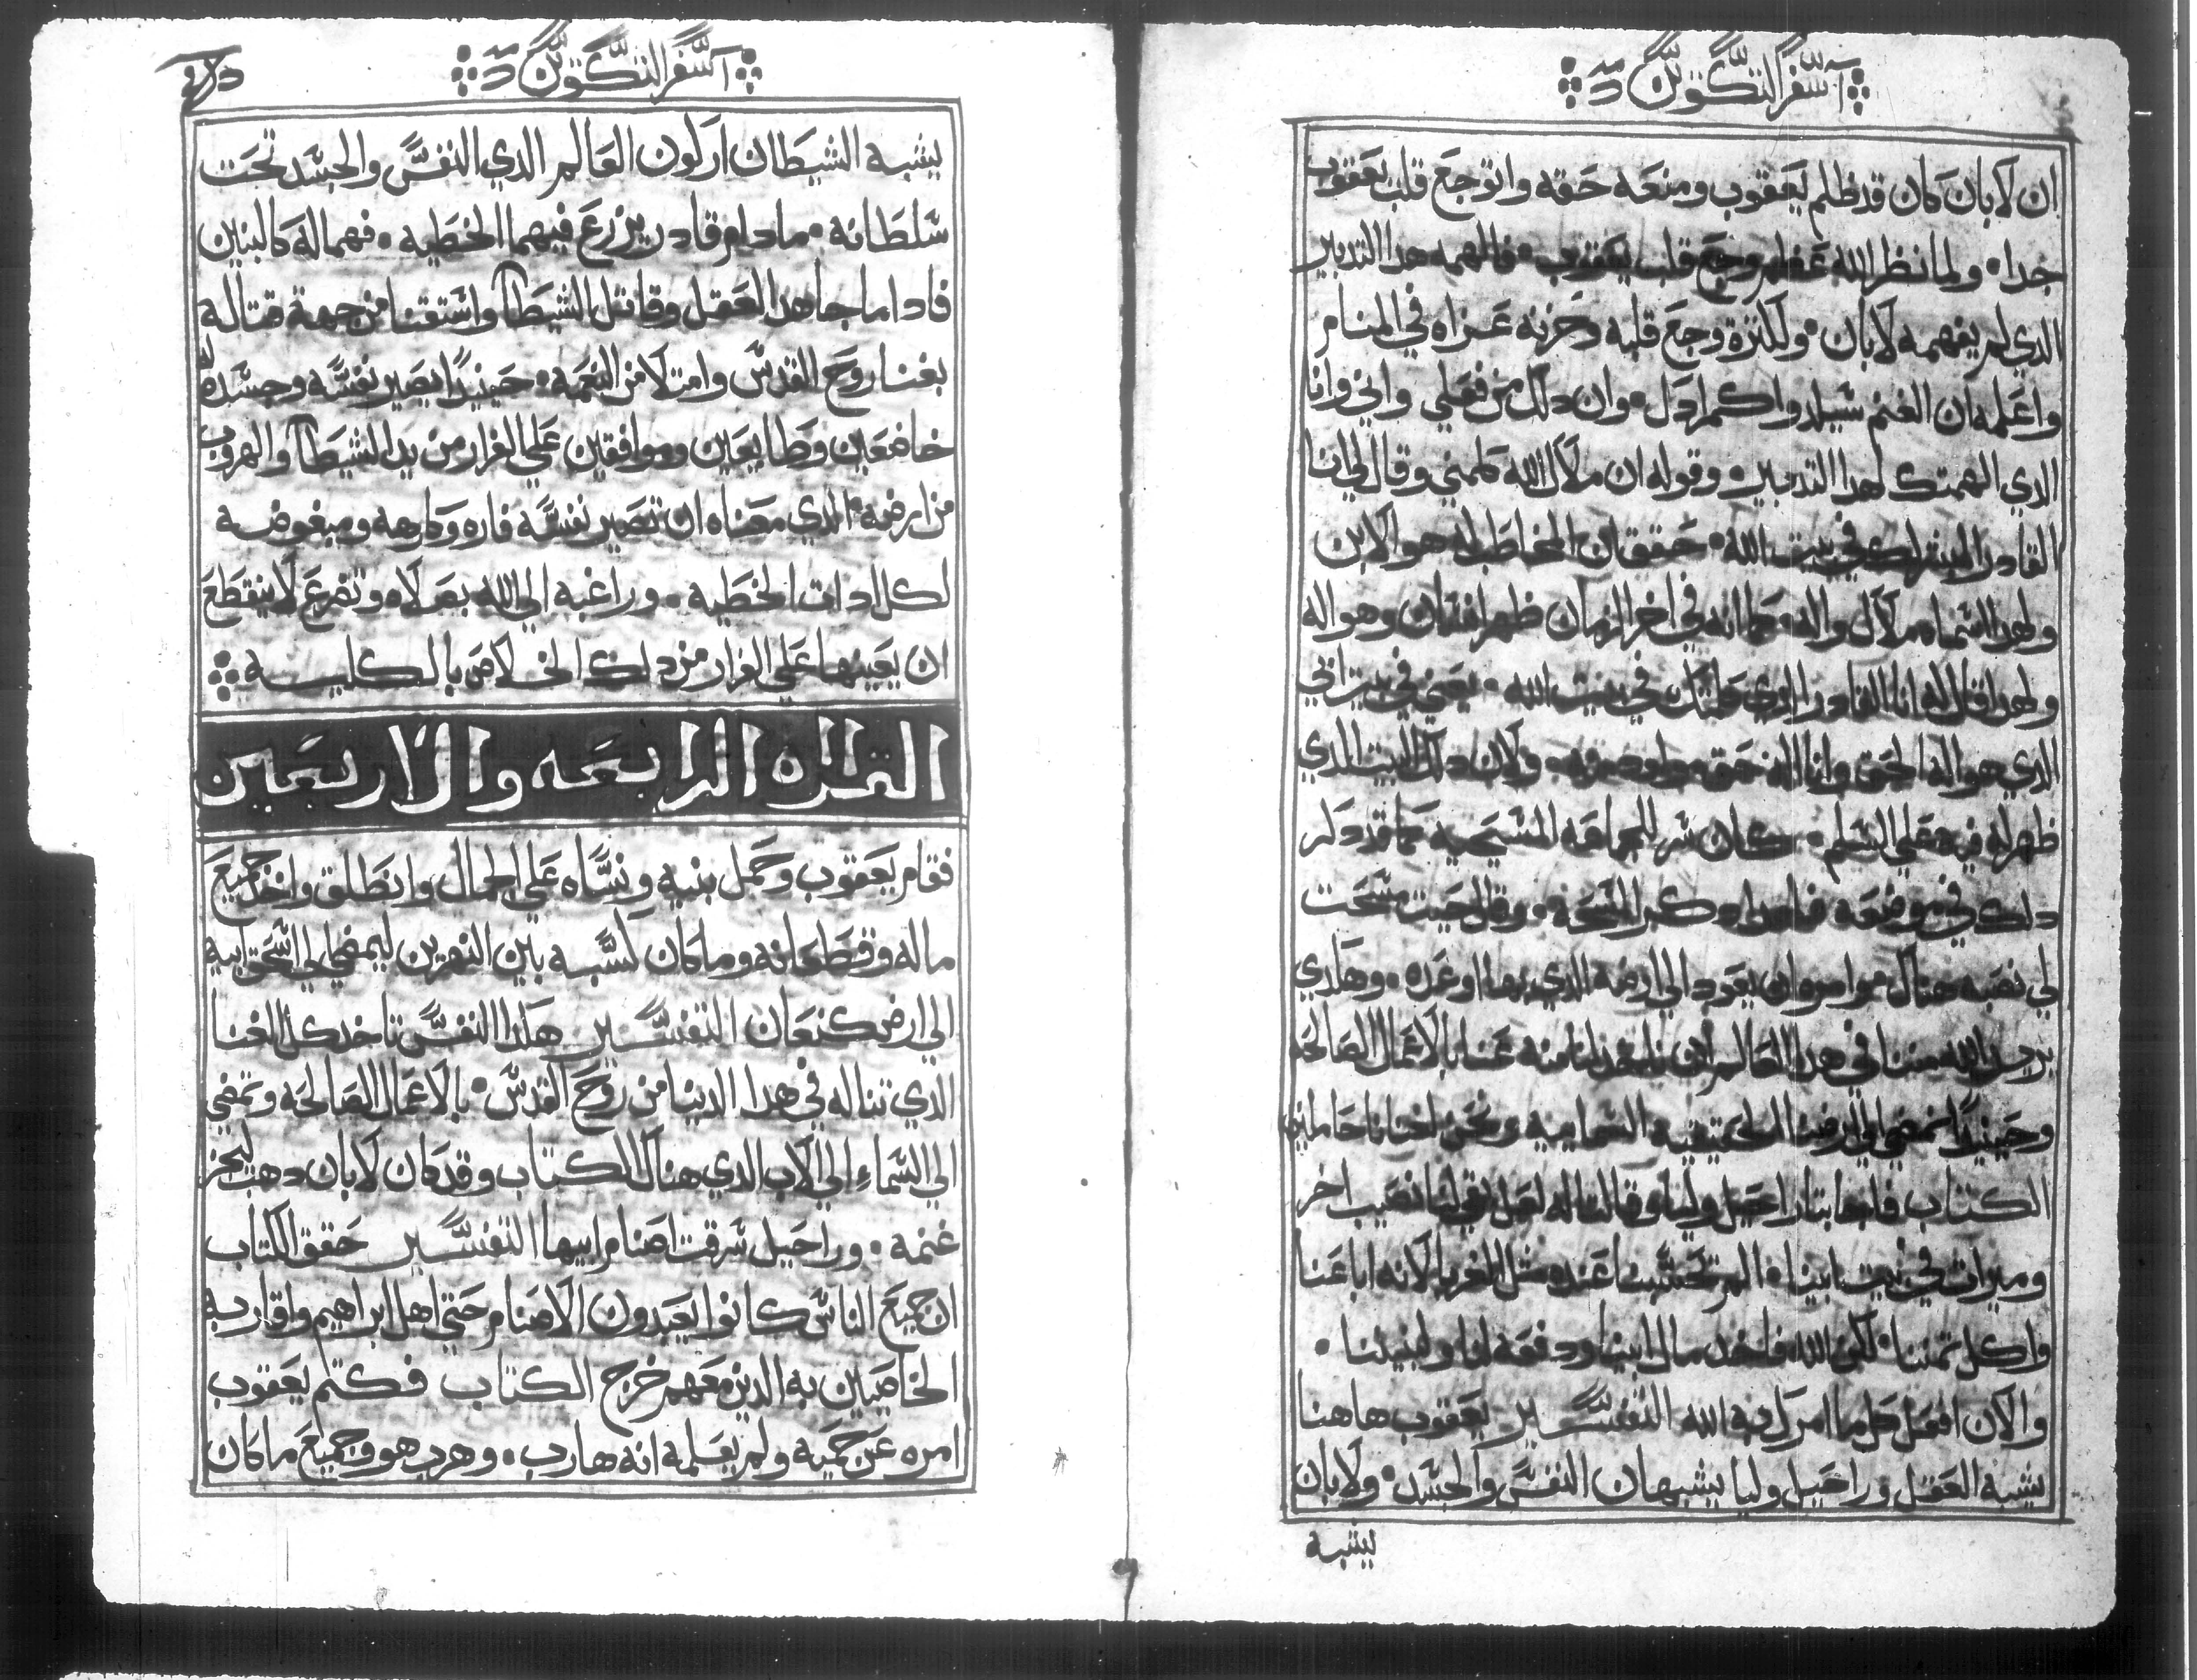 سفر التكوين
ان لابان كان قد ظلم يعقوب ومنعه حقه واتوجع قلب يعقوب
جدا٠ ولما نظر الله عظم وجع قلب يعقوب٠ فالهمه هدا التدبير
الدي لم يفهمه لابان٠ ولكترة وجع قلبه وحزنه عزاه في المنام
واعلمه ان الغنم سيلدوا كمرادك٠ وان دلك من فعلي واني وانا
الدي الهمتك لهدا التدبير٠ وقوله ان ملاك الله كلمني وقال لي انا
القادر المبشرك في بيت الله٠ حقق ان المخاطب له هو الابن
ولهدا اسماه ملاك واله وكما انه في اخر الزمان ظهر انسان وهو اله
ولهدا قال له انا القادر الدي كلمتك في بيت الله٠ يعني في بيت ابي
الدي هو اله الحق وانا اله حق مولود منه٠ ولان دلك البيت الدي
ظهر له فيه علي السلم٠ كان سر للجماعه المسيحيه كما قد دكر
دلك في موضعه فلهدا دكر المسحه٠ وقال حيت مسحت
لي نصبه هناك وامره ان يعود الي ارضه الدي بها اوعده٠ وهكدي
يريد الله مننا في هدا العالم ان ناخد لنا منه غنا بالاعمال الصالحه
وحينيدا نمضي الي ارضنا الحقيقيه السمايه ونحن اغنانا حاملين
الكتاب فاجابتا راحيل وليا وقالتا له لعل بقي لنا نصيب اخر
وميرات في بيت ابينا٠ الم تحسبنا عنده مثل الغربا لانه اباعنا
واكل تمننا٠ لكن الله فاخد مال ابينا ودفعه لنا ولبنينا٠
والان افعل كل ما امرك به الله التفسير يعقوب هاهنا
يشبه العقل وراحيل وليا يشبهان النفس والجسد٠ ولابان
يشبه
سفر التكوين
يشبه الشيطان اركون العالم الدي النفس والجسد تحت
سلطانه٠ مادام قادر يزرع فيهما الخطيه٠ فهما له كالبنين
فاداما جاهد العقل وقاتل الشيطان واستغنا من جهة قتاله
بغنا روح القدس وامتلا من النعمه٠ حينيدا يصير نفسه وجسده
خاضعين وطايعين وموافقين علي الفرار من يد الشيطان والهروب
من ارضه٠ الدي معناه ان تصير نفسه فاره وكارهه ومبغوضه
لكل ادات الخطيه٠ وراغبه الي الله بصلاه وتضرع لا ينقطع
ان يعينها علي الفرار من دلك الخلاص بالكليه
القراه الرابعه والاربعين
فقام يعقوب وحمل بنيه ونساه علي الجمال وانطلق واخد جميع
ماله وقطعانه وما كان كسبه بين النهرين ليمضي الي اسحق ابيه
الي ارض كنعان التفسير هكدا النفس تاخد كل الغنا
الدي تناله في هدا الدنيا من روح القدس٠ بالاعمال الصالحه وتمضي
الي السماء الي الاب الدي هناك الكتاب وقد كان لابان دهب ليجز
غنمه٠ وراحيل سرقت اصنام ابيها التفسير حقق الكتاب
ان جميع الناس كانوا يعبدون الاصنام حتي اهل ابراهيم واقاربه
الخاصين به الدين معهم خرج الكتاب فكتم يعقوب
امره عن حميه ولم يعلمه انه هارب٠ وهرب هو وجميع ما كان